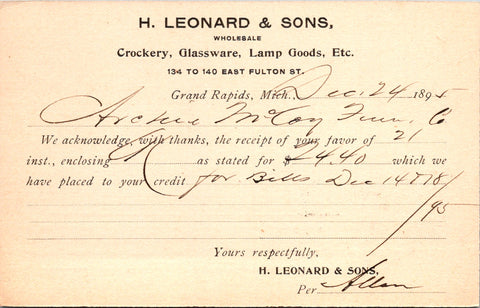 H. LEONARD & SONS,
WHOLESALE
Crockery, Glassware, Lamp Goods, Etc.
134 TO 140 EAST FULTON ST.
Grand Rapids, Mich., Dec. 24 1895
McCoy
We acknowledge, with thanks, the receipt of your favor of 21
inst., enclosing as stated for $24.40 which we
have placed to your credit for Bills Dec 14 & 18/
95
Yours respectfully,
H. LEONARD & SONS,
Per Allen